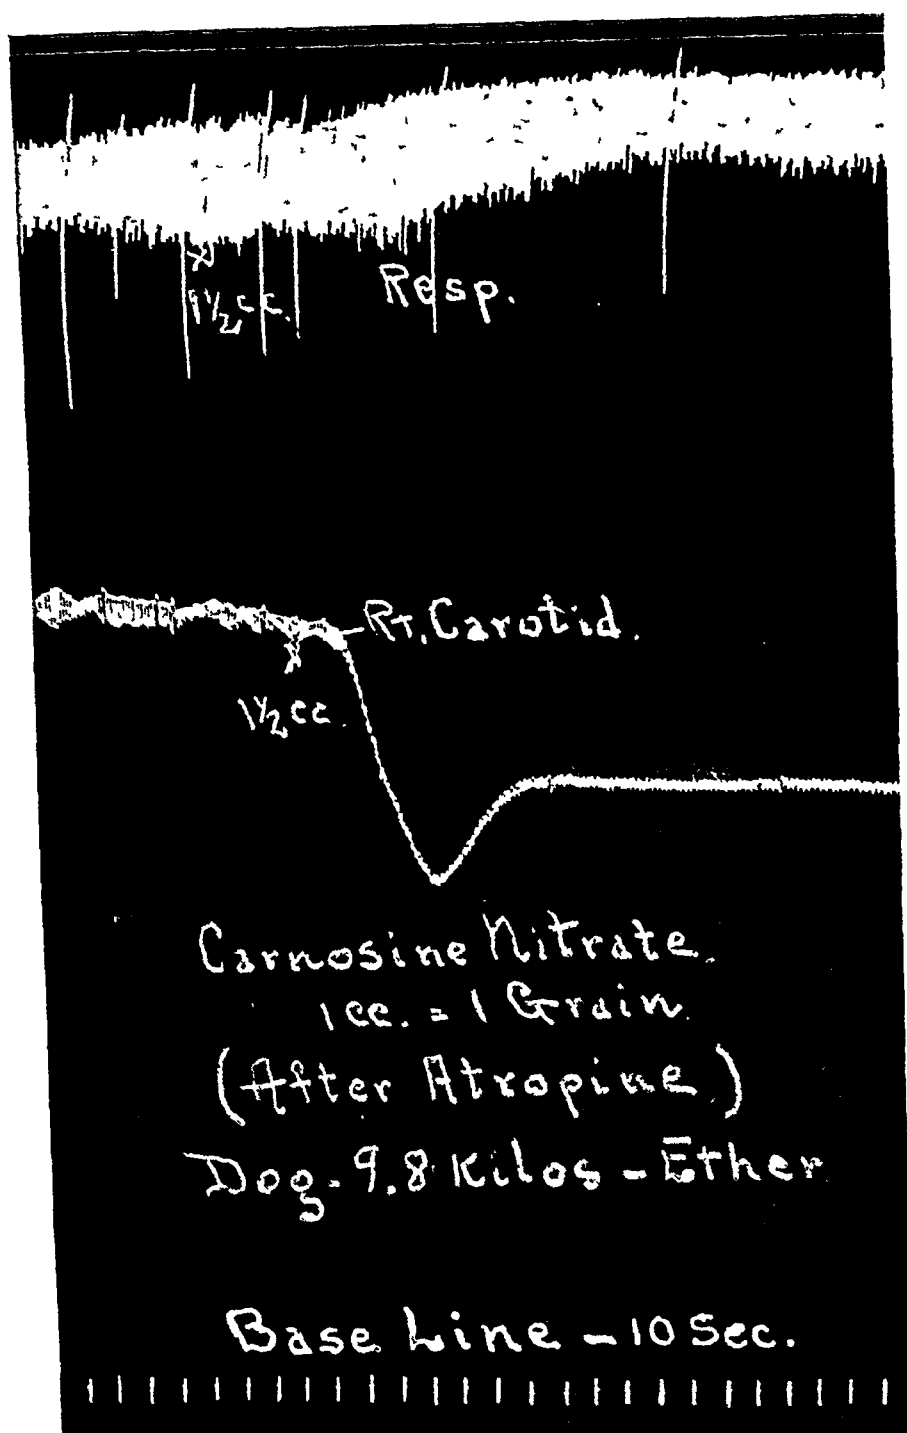 Resp.
1½ c.c.
Rt. Carotid.
1½ cc.
Carnosine Nitrate.
1 cc. = 1 Grain.
(After Atropine)
Dog - 9.8 Kilos - Ether
Base Line - 10 Sec.